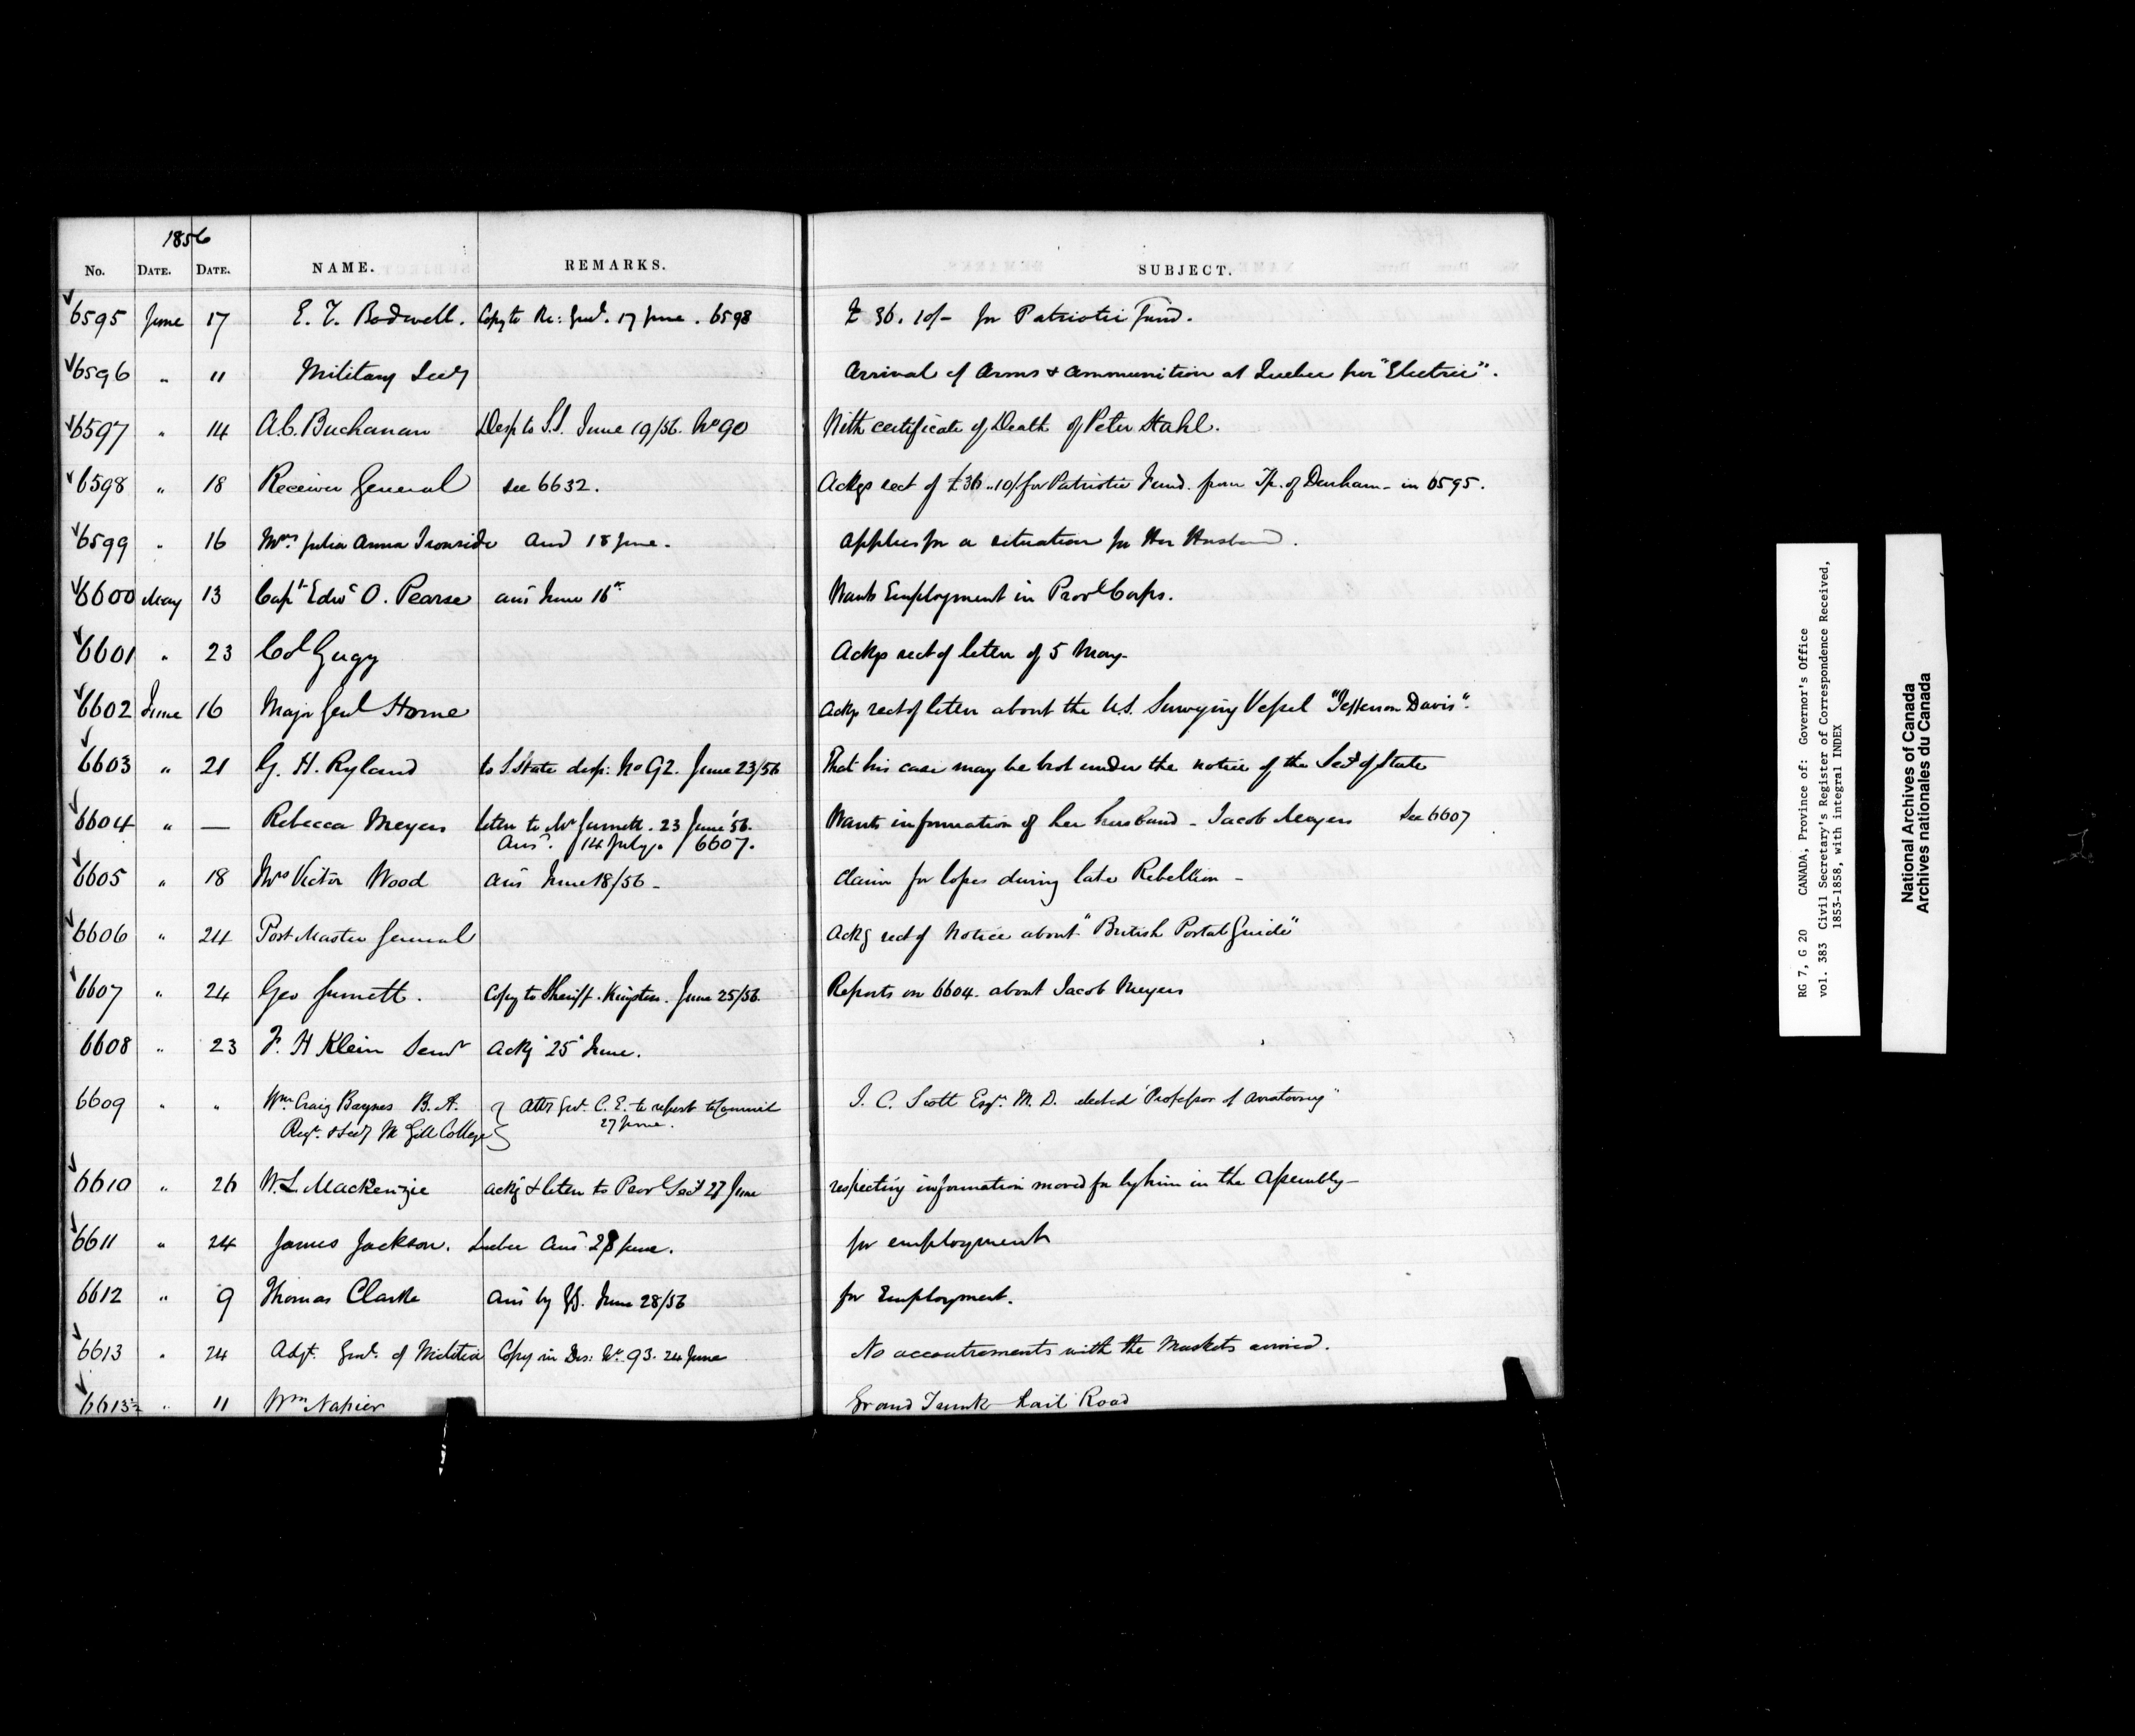 1856
No. DATE. DATE. NAME. REMARKS. SUBJECT.
6595 June 17 E. T. Bodwell. Copy to Re: Genl. 17 June. 6598 £ 36. 10/- for Patriotic Fund.
6596 " 11 Military Secy Arrival of Arms & Ammunition at Quebec per "Electric".
6597 " 14 A.C. Buchanan Desp to S.S. June 19/56. No 90 With certificate of Death of Peter Stahl.
6598 " 18 Receiver General see 6632. Ackgs rect of £36..10/ for Patriotic Fund from Tp. of Durham - in 6595.
6599 " 16 Mrs. Julia Anna Ironside Ansd 18 June. applies for a situation for Her Husband.
6600 May 13 Capt Edwd O. Pearse ansd June 16th Wants Employment in Provl Corps.
6601 " 23 Col Gugy Ackgs rect of letter of 5 May
6602 June 16 Major Genl Horne Ackgs rect of letter about the U.S. Surveying Vessel "Jefferson Davis".
6603 " 21 G. H. Ryland to S. State desp: No 92. June 23/56 That his case may be brot under the notice of the Secy of State
6604 " — Rebecca Meyers letter to Mr Gurnett. 23 June '56. Wants information of her husband - Jacob Meyers See 6607
Ansd. 14 July. / 6607.
6605 " 18 Mrs Victor Wood ansd June 18/56 - Claim for losses during late Rebellion -
6606 " 24 Post Master General Ackg rect of Notice about "British Postal Guide"
6607 " 24 Geo Gurnett. Copy to Sheriff. Kingston. June 25/56. Reports on 6604. about Jacob Meyers
6608 " 23 F. H Klein Senr Ackg 25 June.
6609 " " Wm. Craig Baynes B.A. } Atty Genl. C. E. to report to Council J. C. Scott Esqr. M. D. elected "Professor of Anatomy"
Regr. & Secy McGill College 27 June.
6610 " 26 W.L. Mackenzie ackg & letter to Provl Secy 27 June respecting information moved for by him in the Assembly -
6611 " 24 James Jackson. Quebec Ansd 28 June. for employment
6612 " 9 Thomas Clarke Ansd by June 28/56 for Employment.
6613 " 24 Adjt. Genl. of Militia Copy in Des: No. 93. 24 June No accoutrements with the Muskets arrived.
6613½ " 11 Wm Napier Grand Trunk Rail Road
RG 7, G 20 CANADA, Province of: Governor's Office
vol. 383 Civil Secretary's Register of Correspondence Received,
1853-1858, with integral INDEX
National Archives of Canada
Archives nationales du Canada